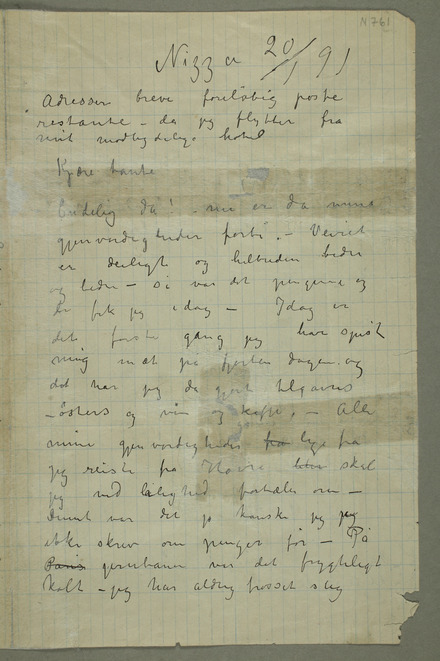 N 761
Nizza 20/1 91
Adressen breve foreløbig poste
restante – da jeg flytter fra
mit modbydelige hotel
Kjære tante
Endelig da! – nu er da mine
gjenvordigheder forbi. – Veiret
er deiligt og helbreden bedre
og bedre – så var det pengene og
de fik jeg idag – Idag er
det første gang jeg har spist
mig mæt på fjorten dage. og
det har jeg da gjort tilgavns
– østers og vin og kaffe. – Alle
mine gjenvordigheder fra lige fra
jeg reiste fra Havre skal
jeg ved leilighed fortælle om –
Dumt var det jo kanske jeg jeg
ikke skrev om penger før – På
Paris jernbanen var det frygteligt
koldt – jeg har aldrig frosset slig